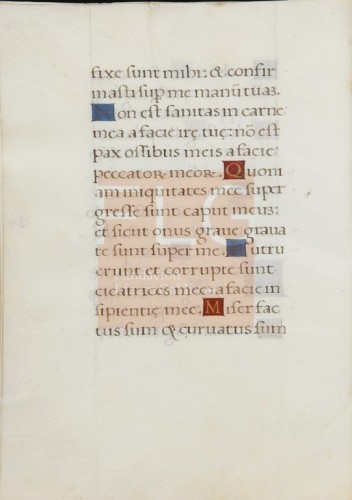 fixe sunt mihi: & confir
masti sup me manū tuaꝫ.
Non est sanitas in carne
mea a facie irę tuę: nō est
pax ossibus meis a facie
peccatoꝝ meoꝝ. Quoni
am iniquitates mee super
gresse sunt caput meuꝫ:
et sicut onus graue graua
te sunt super me. Putru
erunt et corrupte sunt
cicatrices mee a facie in
sipientię mee. Miser fac
tus sum & curuatus sum